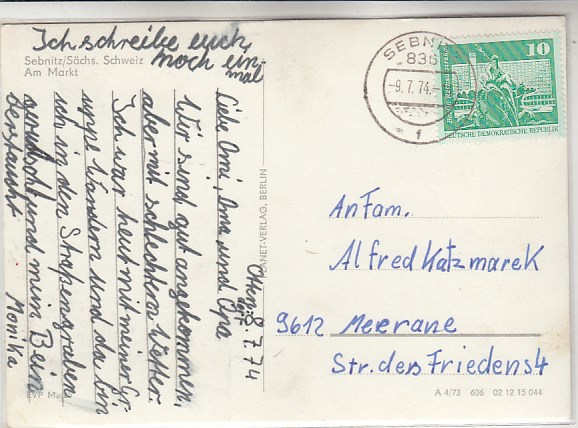 Ich schreibe euch
noch ein-
mal
Sebnitz/Sächs. Schweiz
Am Markt
Otten, 8. 7. 74
Liebe Omi, Oma und Opa
Wir sind gut angekommen,
aber mit schlechtem Wetter.
Ich war heut mit meiner Gr
uppe Wandern und da bin
ich in den Straßengraben
gerutscht und mein Bein
verstaucht
Monika
EVP M
PLANET-VERLAG, BERLIN
SEBNITZ
836
-9.7.74.-
f
10
DEUTSCHE DEMOKRATISCHE REPUBLIK
An Fam.
Alfred Katzmarek
9612 Meerane
Str. des Friedens 4
A 4/73 606 02 12 15 044